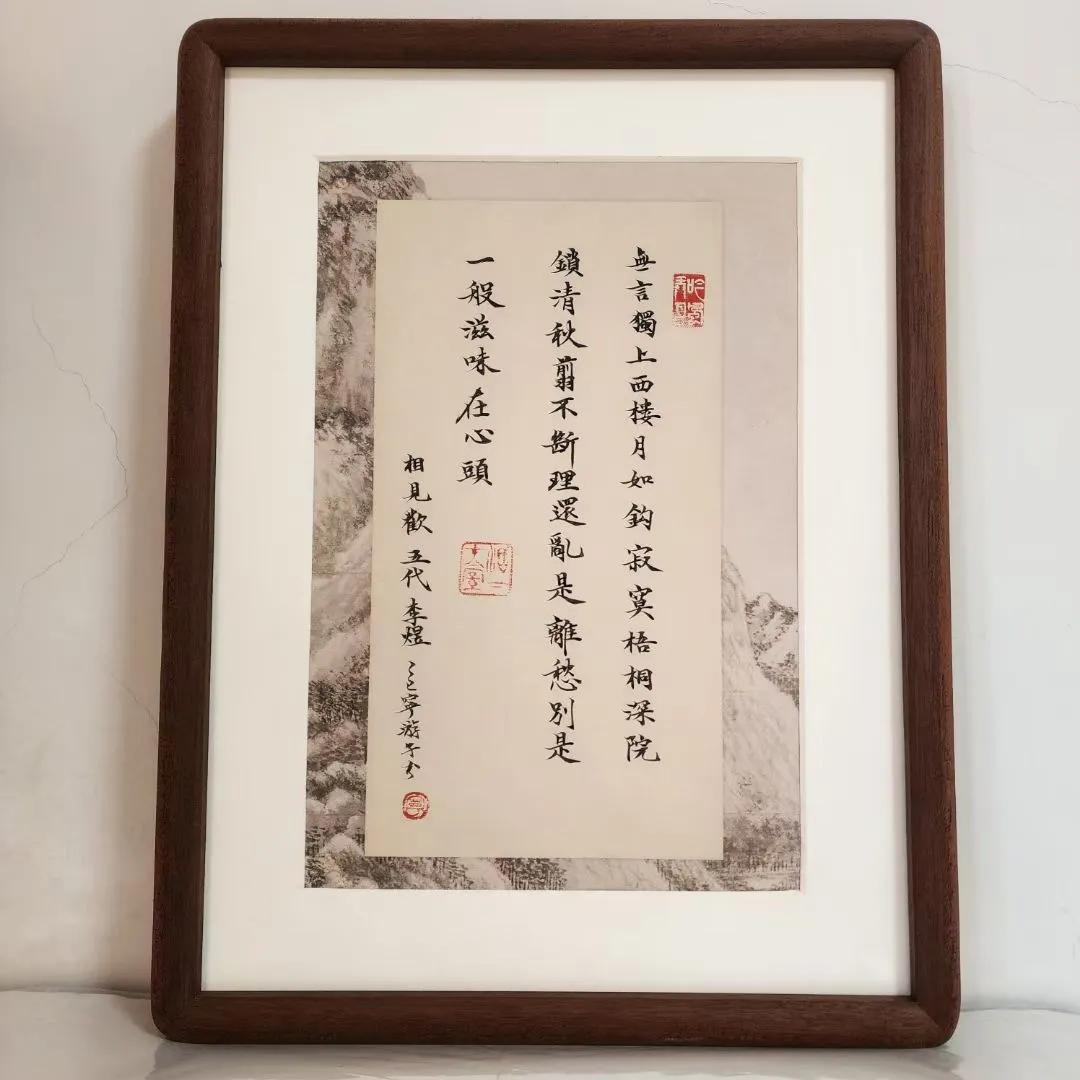 無言獨上西楼月如鈎寂寞梧桐深院
鎖清秋翦不斷理還亂是離愁別是
一般滋味在心頭
相見歡 五代 李煜
寧游子书